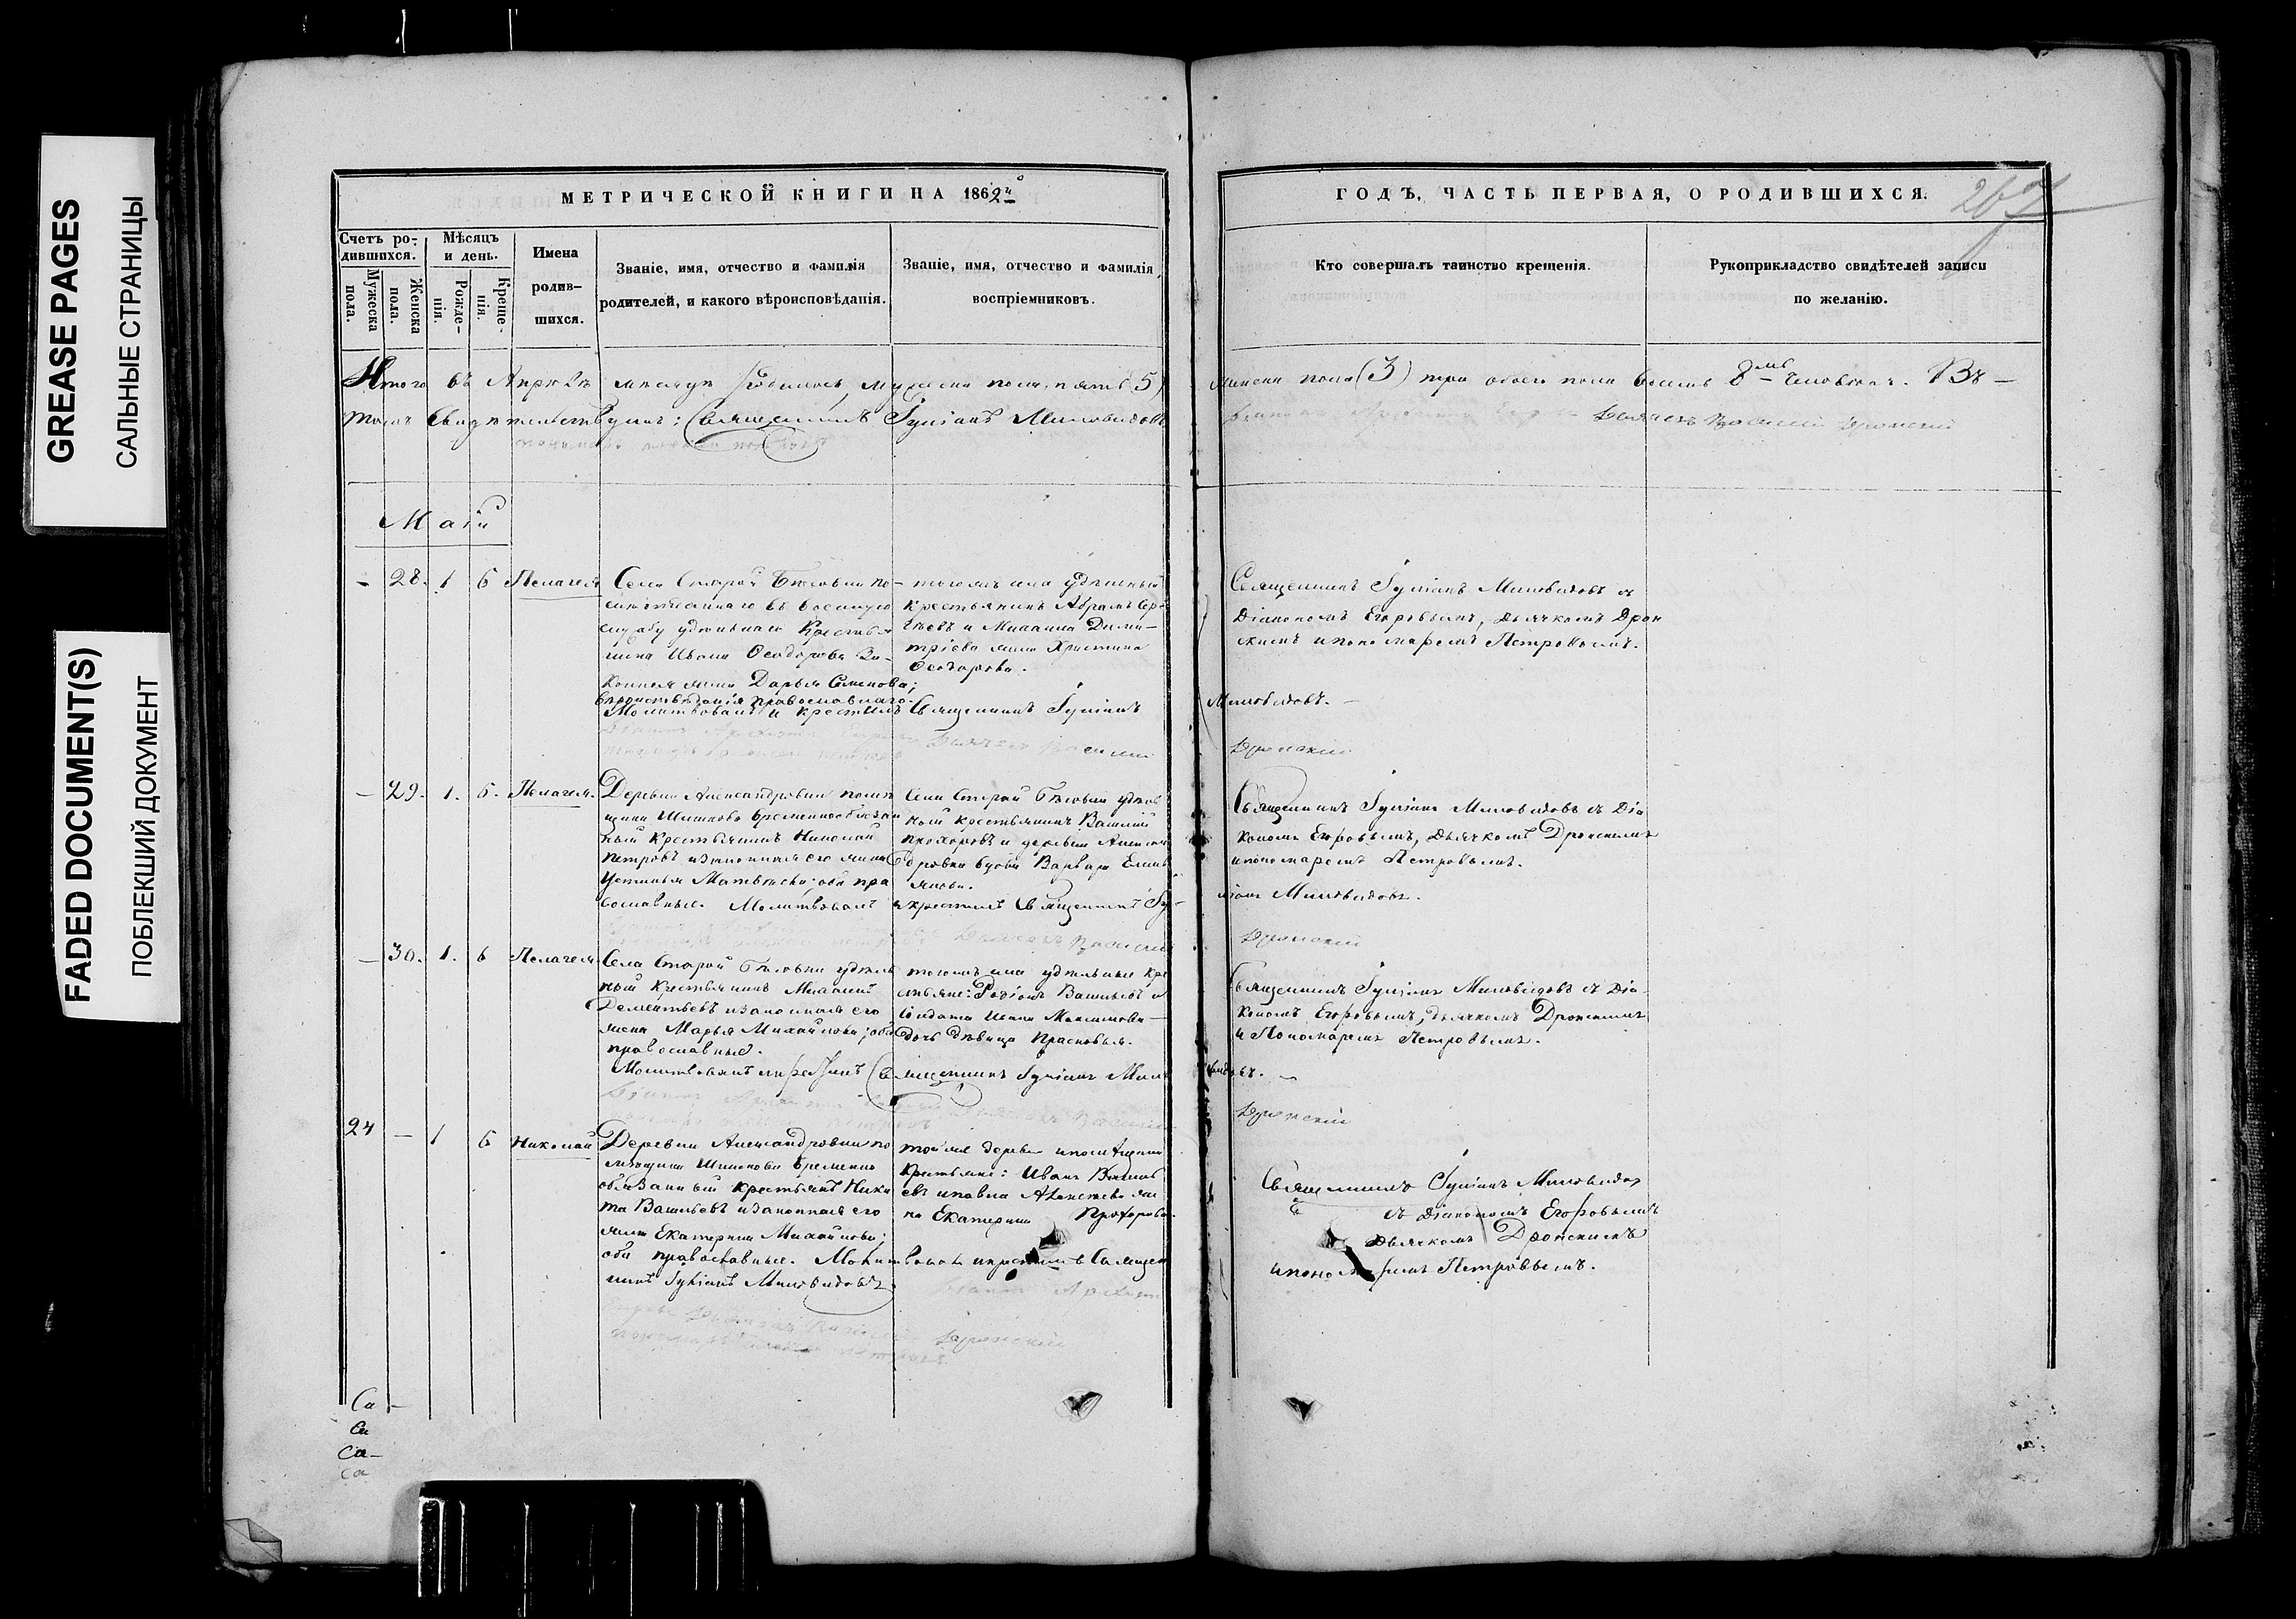 GREASE PAGES
САЛЬНЫЕ СТРАНИЦЫ
FADED DOCUMENT(S)
ПОБЛЕКШИЙ ДОКУМЕНТ
МЕТРИЧЕСКОЙ КНИГИ НА 1862й
Счетъ родившихся.
Мужеска пола.
Женска пола.
Мѣсяцъ и день.
Рожденія.
Крещенія.
Имена
родив-
шихся.
Званіе, имя, отчество и фамилія
родителей, и какого вѣроисповѣданія.
Званіе, имя, отчество и фамилія
воспріемниковъ.
Итого въ Апрѣлѣ мѣсяцѣ родилось мужеска пола пять (5)
томъ свидѣтельствуемъ: Священникъ Іуліанъ Миловидовъ
Маія
- 28. 1 6 Пелагея
Села Старой Бѣловки по-
военную
службу удѣльнаго Крестья
нина Ивана Ѳеодорова За-
конная жена Дарья Семенова;
вѣроисповѣданія православнаго.
Молитвовалъ и крестилъ Священникъ Іуліанъ
тогожъ села удѣльный
крестьянинъ Абрамъ Сер-
гѣевъ и Михаила Дими-
тріева жена Христина
Ѳеодорова.
- 29. 1. 6. Пелагея.
Деревни Александровки помѣ
щика Шишкова временнообязан
ный Крестьянинъ Николай
Петровъ и законная его жена
Устинья Матвѣева; оба пра
вославные. Молитвовалъ и крестилъ Священникъ Іу-
Села Старой Бѣловки удѣль
ный крестьянинъ Василій
Прохоровъ и деревни Алексан
дровки вдова Варвара Емель
янова.
- 30. 1. 6 Пелагея
Села Старой Бѣловки удѣль
ный Крестьянинъ Михаилъ
Дементьевъ и законная его
жена Марья Михайлова; оба
православные.
Молитвовалъ и крестилъ Священникъ Іуліанъ Мило
тогожъ села удѣльные кре
стьяне: Родіонъ Васильевъ и
Солдата Ивана Максимова
дочь дѣвица Прасковья.
24 - 1 6 Николай
Деревни Александровки по
мѣщика Шишкова временно
обязанный крестьянъ Ники
та Васильевъ и законная его
жена Екатерина Михайлова;
оба православные. Молитвовалъ и крестилъ Священ
никъ Іуліанъ Миловидовъ
той же деревни и помѣщика
Крестьяне: Иванъ Василь
евъ и Павла Алексѣева же
на Екатерина Прохорова.
Са-
Са
Са-
са
ГОДЪ, ЧАСТЬ ПЕРВАЯ, О РОДИВШИХСЯ.
267
Кто совершалъ таинство крещенія.
Рукоприкладство свидѣтелей записи
по желанію.
женска пола (3) три обоего пола восемь 8мь человѣкъ. Въ -
Дьячекъ Василій Дронскій
Священникъ Іуліанъ Миловидовъ съ
Діакономъ Егоровымъ, дьячкомъ Дрон
скимъ и пономаремъ Петровымъ.
Миловидовъ.
Дронскій
Священникъ Іуліанъ Миловидовъ съ Діа
кономъ Егоровымъ, дьячкомъ Дронскимъ
и пономаремъ Петровымъ.
ліанъ Миловидовъ.
Дронскій
Священникъ Іуліанъ Миловидовъ съ Діа-
кономъ Егоровымъ, дьячкомъ Дронскимъ
и Пономаремъ Петровымъ.
видовъ.
Дронскій
Священникъ Іуліанъ Миловидовъ
съ Діакономъ Егоровымъ
дьячкомъ Дронскимъ
и пономаремъ Петровымъ.